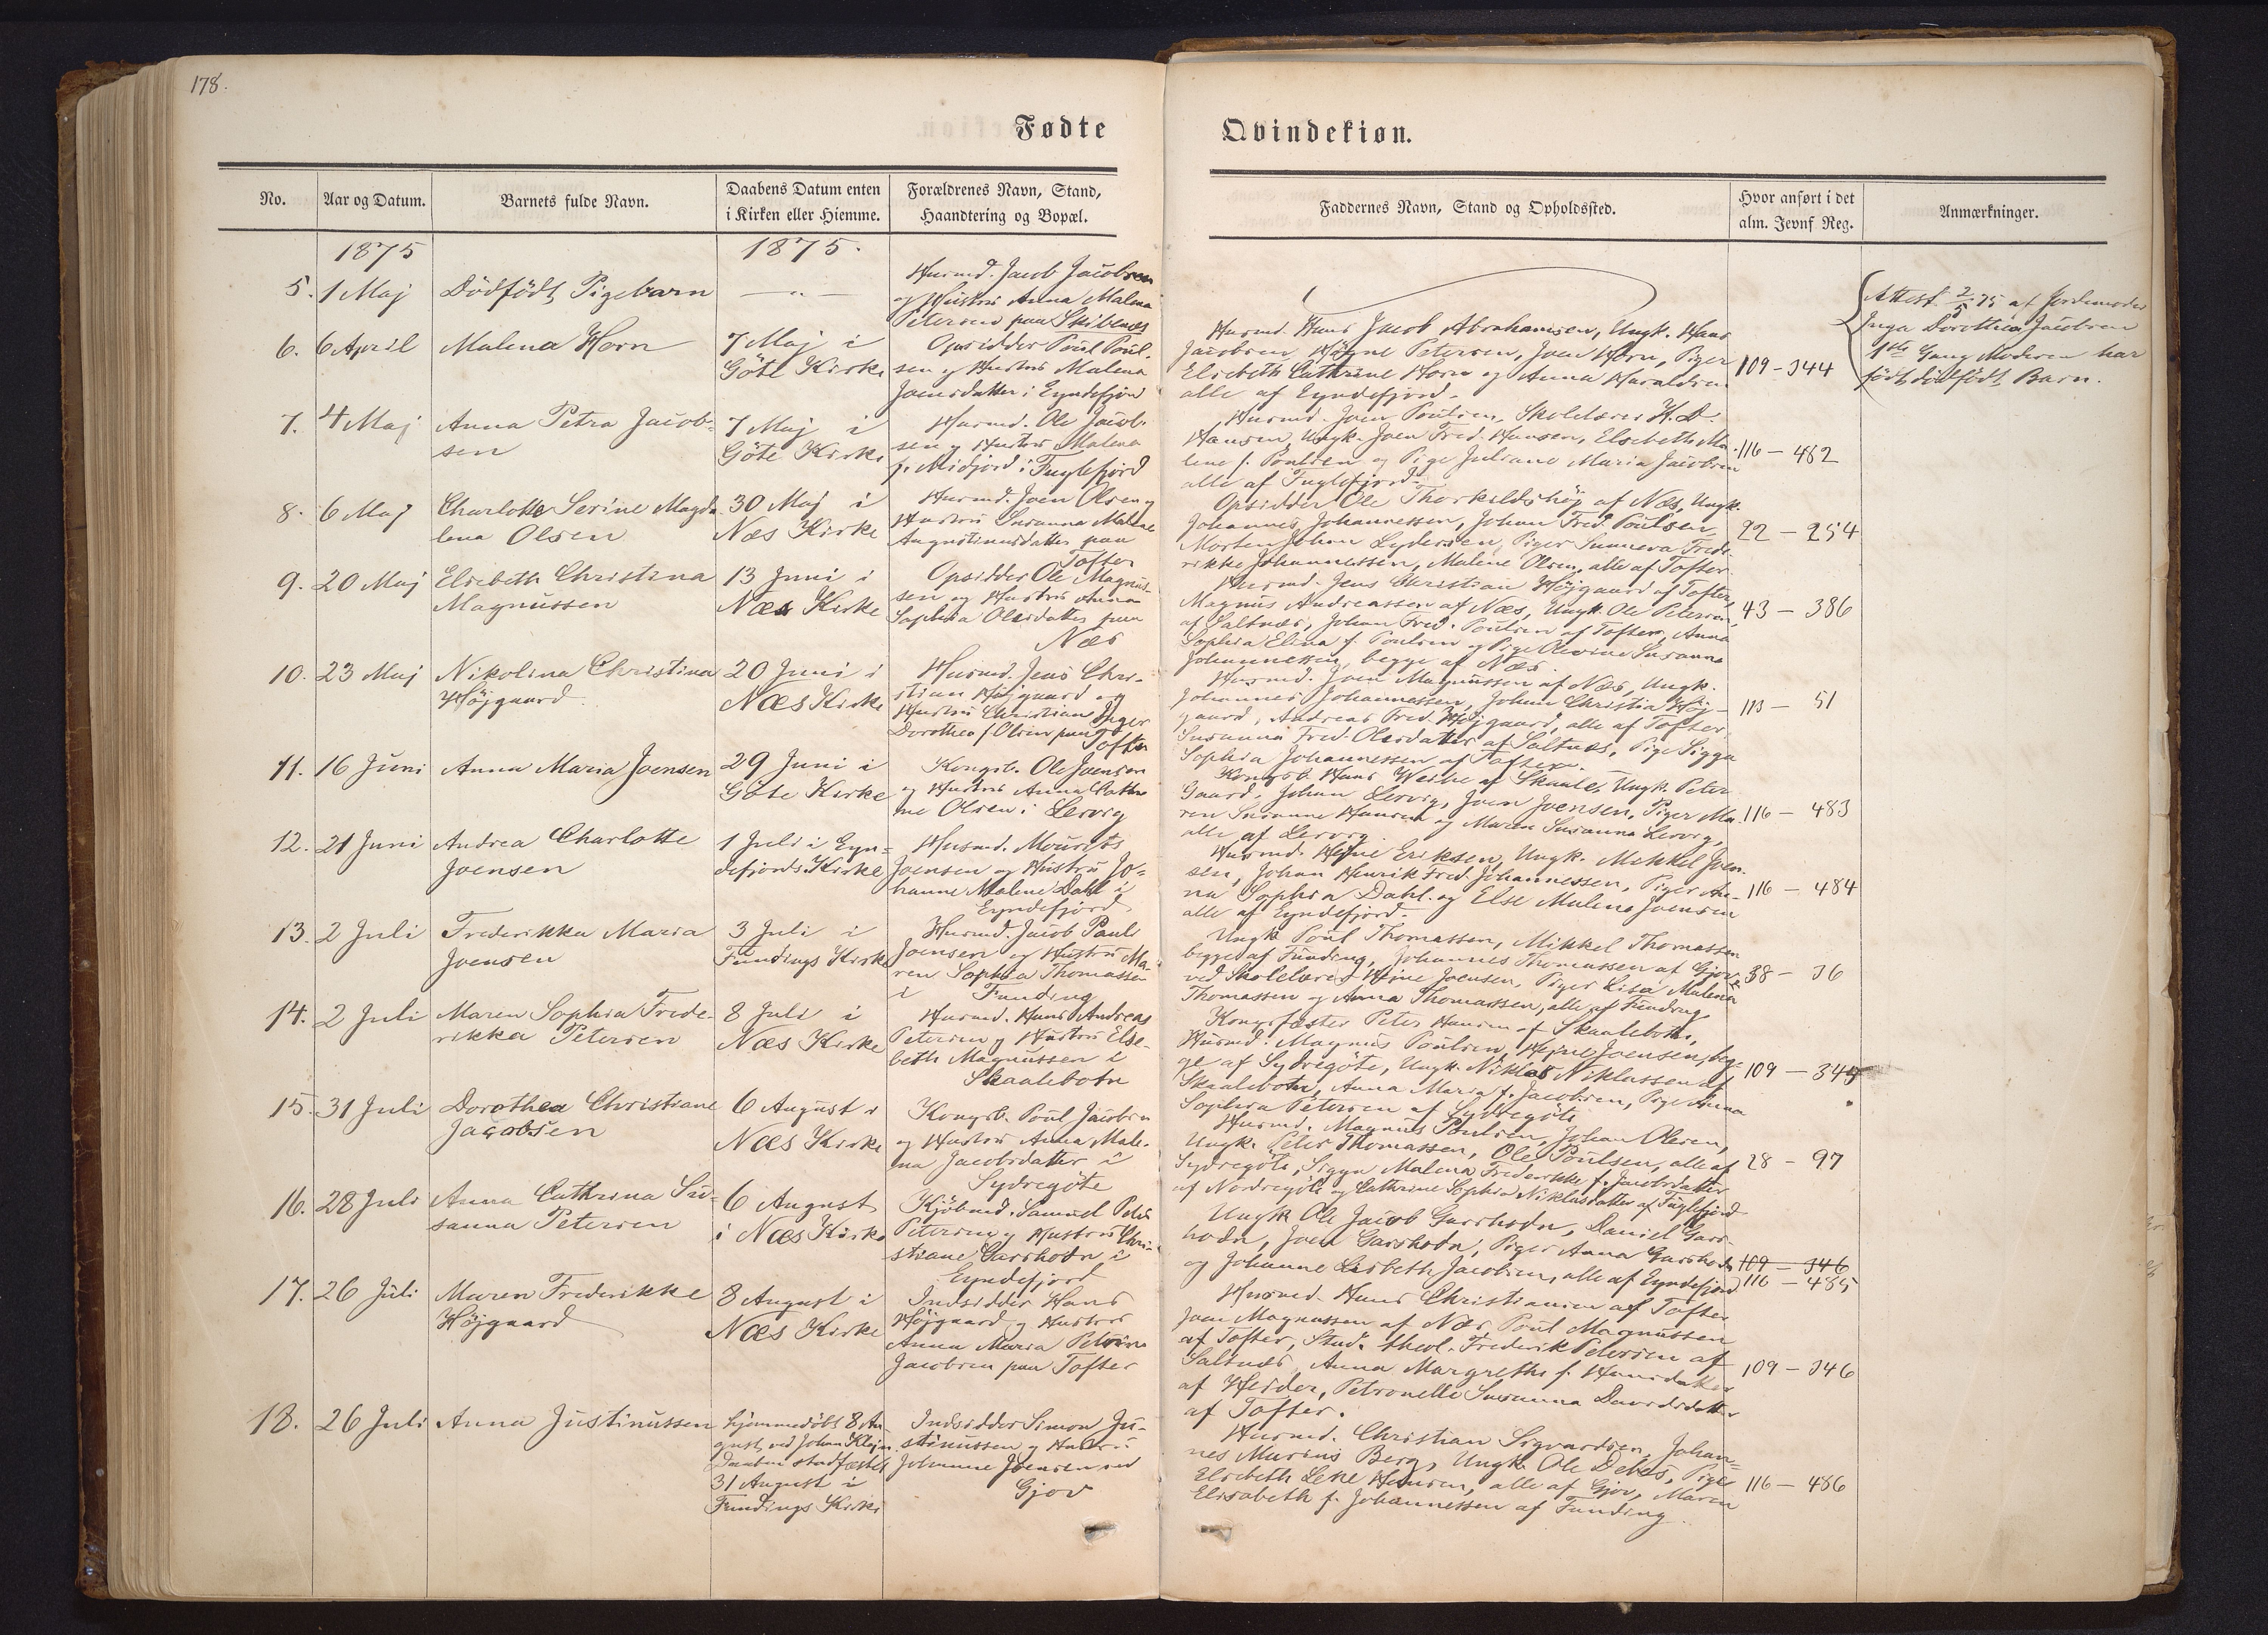 178.
Fødte
Qvindekiøn.
No.
Aar og Datum.
Barnets fulde Navn.
Daabens Datum enten
i Kirken eller Hiemme.
Forældrenes Navn, Stand,
Haandtering og Bopæl.
Faddernes Navn, Stand og Opholdssted.
Hvor anført i det
alm. Jevnf Reg.
Anmærkninger.
1875
1875.
5. 1 Maj
Dödfödt Pigebarn
— „ —
Husmd. Jacob Jacobsen
og Hustru Anna Malena
Petersen paa Skibenæs
Attest 2/5 75 af Jordemoder
Inga Dorothea Jacobsen
1ste Gang Moderen har
födt dödfödt Barn.
6. 6 April
Malena Horn
7 Maj i
Göte Kirke
Opsidder Poul Poul-
sen og Hustru Malena
Joensdatter i Eyndefjord
Husmd. Hans Jacob Abrahamsen, Ungk. Hans
Jacobsen, Högne Petersen, Joen Horn, Piger
Elsebeth Cathrine Horn og Anna Haraldsen
alle af Eyndefjord.
109 — 344
7. 4 Maj
Anna Petra Jacob-
sen
7 Maj i
Göte Kirke
Husmd. Ole Jacob-
sen og Hustru Malena
f. Midjord i Fuglefjord
Husmd. Joen Poulsen, Skolelærer H. D.
Hansen, Ungk. Joen Fred. Hansen, Elsebeth Ma-
lene f. Poulsen og Pige Juliane Maria Jacobsen
alle af Fuglefjord.
116 — 482
8. 6 Maj
Charlotte Serine Magda
lena Olsen
30 Maj i
Næs Kirke
Husmd. Joen Olsen og
Hustru Susanna Malene
Augustinusdatter paa
Tofter
Opsidder Ole Thorkildshöj af Næs, Ungk.
Johannes Johannessen, Johan Fred. Poulsen
Morten Johan Lydersen, Piger Sunneva Frede-
rikke Johannessen, Malene Olsen, alle af Tofter
22 — 254
9. 20 Maj
Elsebeth Christina
Magnussen
13 Juni i
Næs Kirke
Opsidder Ole Magnus-
sen og Hustru Anna
Sophia Olesdatter paa
Næs
Husmd. Jens Christian Höjgaard af Tofter,
Magnus Andreassen af Næs, Ungk. Ole Petersen,
af Saltnæs, Johan Fred. Poulsen af Tofter, Anna
Sophia Elina f. Poulsen og Pige Olevine Susanna
Johannessen, begge af Næs.
43 — 386
10. 23 Maj
Nikolina Christina
Höjgaard
20 Juni i
Næs Kirke
Husmd. Jens Chri-
stian Höjgaard og
Hustru Christiane Inger
Dorothea f. Olsen paa
Tofter
Husmd. Joen Magnussen af Næs, Ungk.
Johannes Johannessen, Johan Christian Höj-
gaard, Andreas Fred. Höjgaard, alle af Tofter.
Susanna Fred. Olesdatter af Saltnæs, Pige Sigga
Sophia Johannessen af Tofter.
113 — 51
11. 16 Juni
Anna Maria Joensen
29 Juni i
Göte Kirke
Kongsb. Ole Joensen
og Hustru Anna Cathri
ne Olsen i Lervig
Kongsb. Hans Weihe af Skaale, Ungk. Peter
Gaard, Johan Lervig, Joen Joensen, Piger Ma-
ren Susanne Hansen og Maren Susanna Lervig,
alle af Lervig.
116 — 483
12. 21 Juni
Andrea Charlotte
Joensen
1 Juli i Eyn-
defjords Kirke
Husmd. Mourits
Joensen og Hustru Jo-
hanne Malene Dahl i
Eyndefjord
Husmd. Hejne Eriksen, Ungk. Mikkel Joen-
sen, Johan Henrik Fred. Johannessen, Piger An-
na Sophia Dahl. og Else Malena Joensen
alle af Eyndefjord.
116 — 484
13. 2 Juli
Frederikka Maria
Joensen
3 Juli i
Fundings Kirke
Husmd. Jacob Pauli
Joensen og Hustru Ma-
ren Sophia Thomassen
i Funding
Ungk. Poul Thomassen, Mikkel Thomassen
begge af Funding, Johannes Thomassen af Gjov
ved Skolelærer Hejne Joensen, Piger Lisa Malena
Thomassen og Anna Thomassen, alle af Funding
38 — 36
14. 2 Juli
Maren Sophia Frede-
rikka Petersen
8 Juli i
Næs Kirke
Husmd. Hans Andreas
Petersen og Hustru Else-
beth Magnussen i
Skaalebotn
Kongsfæster Peter Hansen af Skaalebotn,
Husmd. Magnus Poulsen, Hejne Joensen, beg-
ge af Sydregöte, Ungk. Niklas Niklassen af
Skaalebotn, Anna Maria f. Jacobsen, Pige Anna
Sophia Petersen af Sydregöte
109 — 345
15. 31 Juli
Dorothea Christiane
Jacobsen
6 August i
Næs Kirke
Kongsb. Poul Jacobsen
og Hustru Anna Male-
na Jacobsdatter i
Sydregöte
Husmd. Magnus Poulsen, Johan Olesen,
Ungk. Peter Thomassen, Ole Poulsen, alle af
Sydregöte, Sigga Malena Frederikke f. Jacobsdatter
af Nordregöte og Cathrine Sophia Niklasdatter af Fuglefjord
28 — 97
16. 28 Juli
Anna Cathrina Su-
sanna Petersen
6 August
i Næs Kirke
Kjöbmd. Samuel Peter
Petersen og Hustru Chri-
stiane Garshodn i
Eyndefjord
Ungk. Ole Jacob Garshodn, Daniel Gars-
hodn, Joen Garshodn, Piger Anna Garshodn
og Johanne Lisbeth Jacobsen, alle af Eyndefjord
109 — 346
116 — 485
17. 26 Juli
Maren Frederikke
Höjgaard
8 August i
Næs Kirke
Indsidder Hans
Höjgaard og Hustru
Anna Maria Petrine
Jacobsen paa Tofter
Husmd. Hans Christiansen af Tofter
Joen Magnussen af Næs, Poul Magnussen
af Tofter, Stud. theol. Frederik Petersen af
Saltnæs, Anna Margrethe f. Hansdatter
af Heider, Petronelle Susanna Davidsdatter
af Tofter.
109 — 346
18. 26 Juli
Anna Justinussen
hjemmedöbt 8 Au
gust ved Johan Klejn.
Daaben stadfæstet
31 August i
Fundings Kirke
Indsidder Simon Ju-
stinussen og Hustru
Johanne Joensen ved
Gjov
Husmd. Christian Sigvardsen, Johan-
nes Marius Berg, Ungk. Ole Debes, Pige
Elsebeth Lene Hansen, alle af Gjov, Maren
Elisabeth f. Johannessen af Funding.
116 — 486